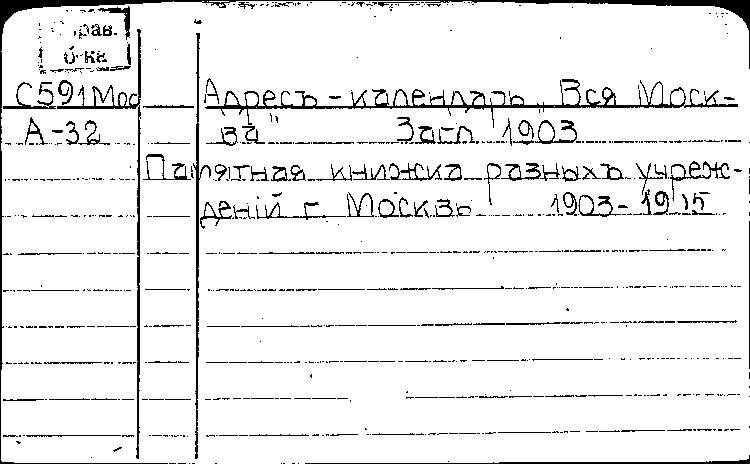 Справ.
б-ка
С591Мос Адресъ-календарь „Вся Моск-
А-32 ва" Загл 1903
Памятная книжка разныхъ учреж-
деній г. Москвъ 1903-1915